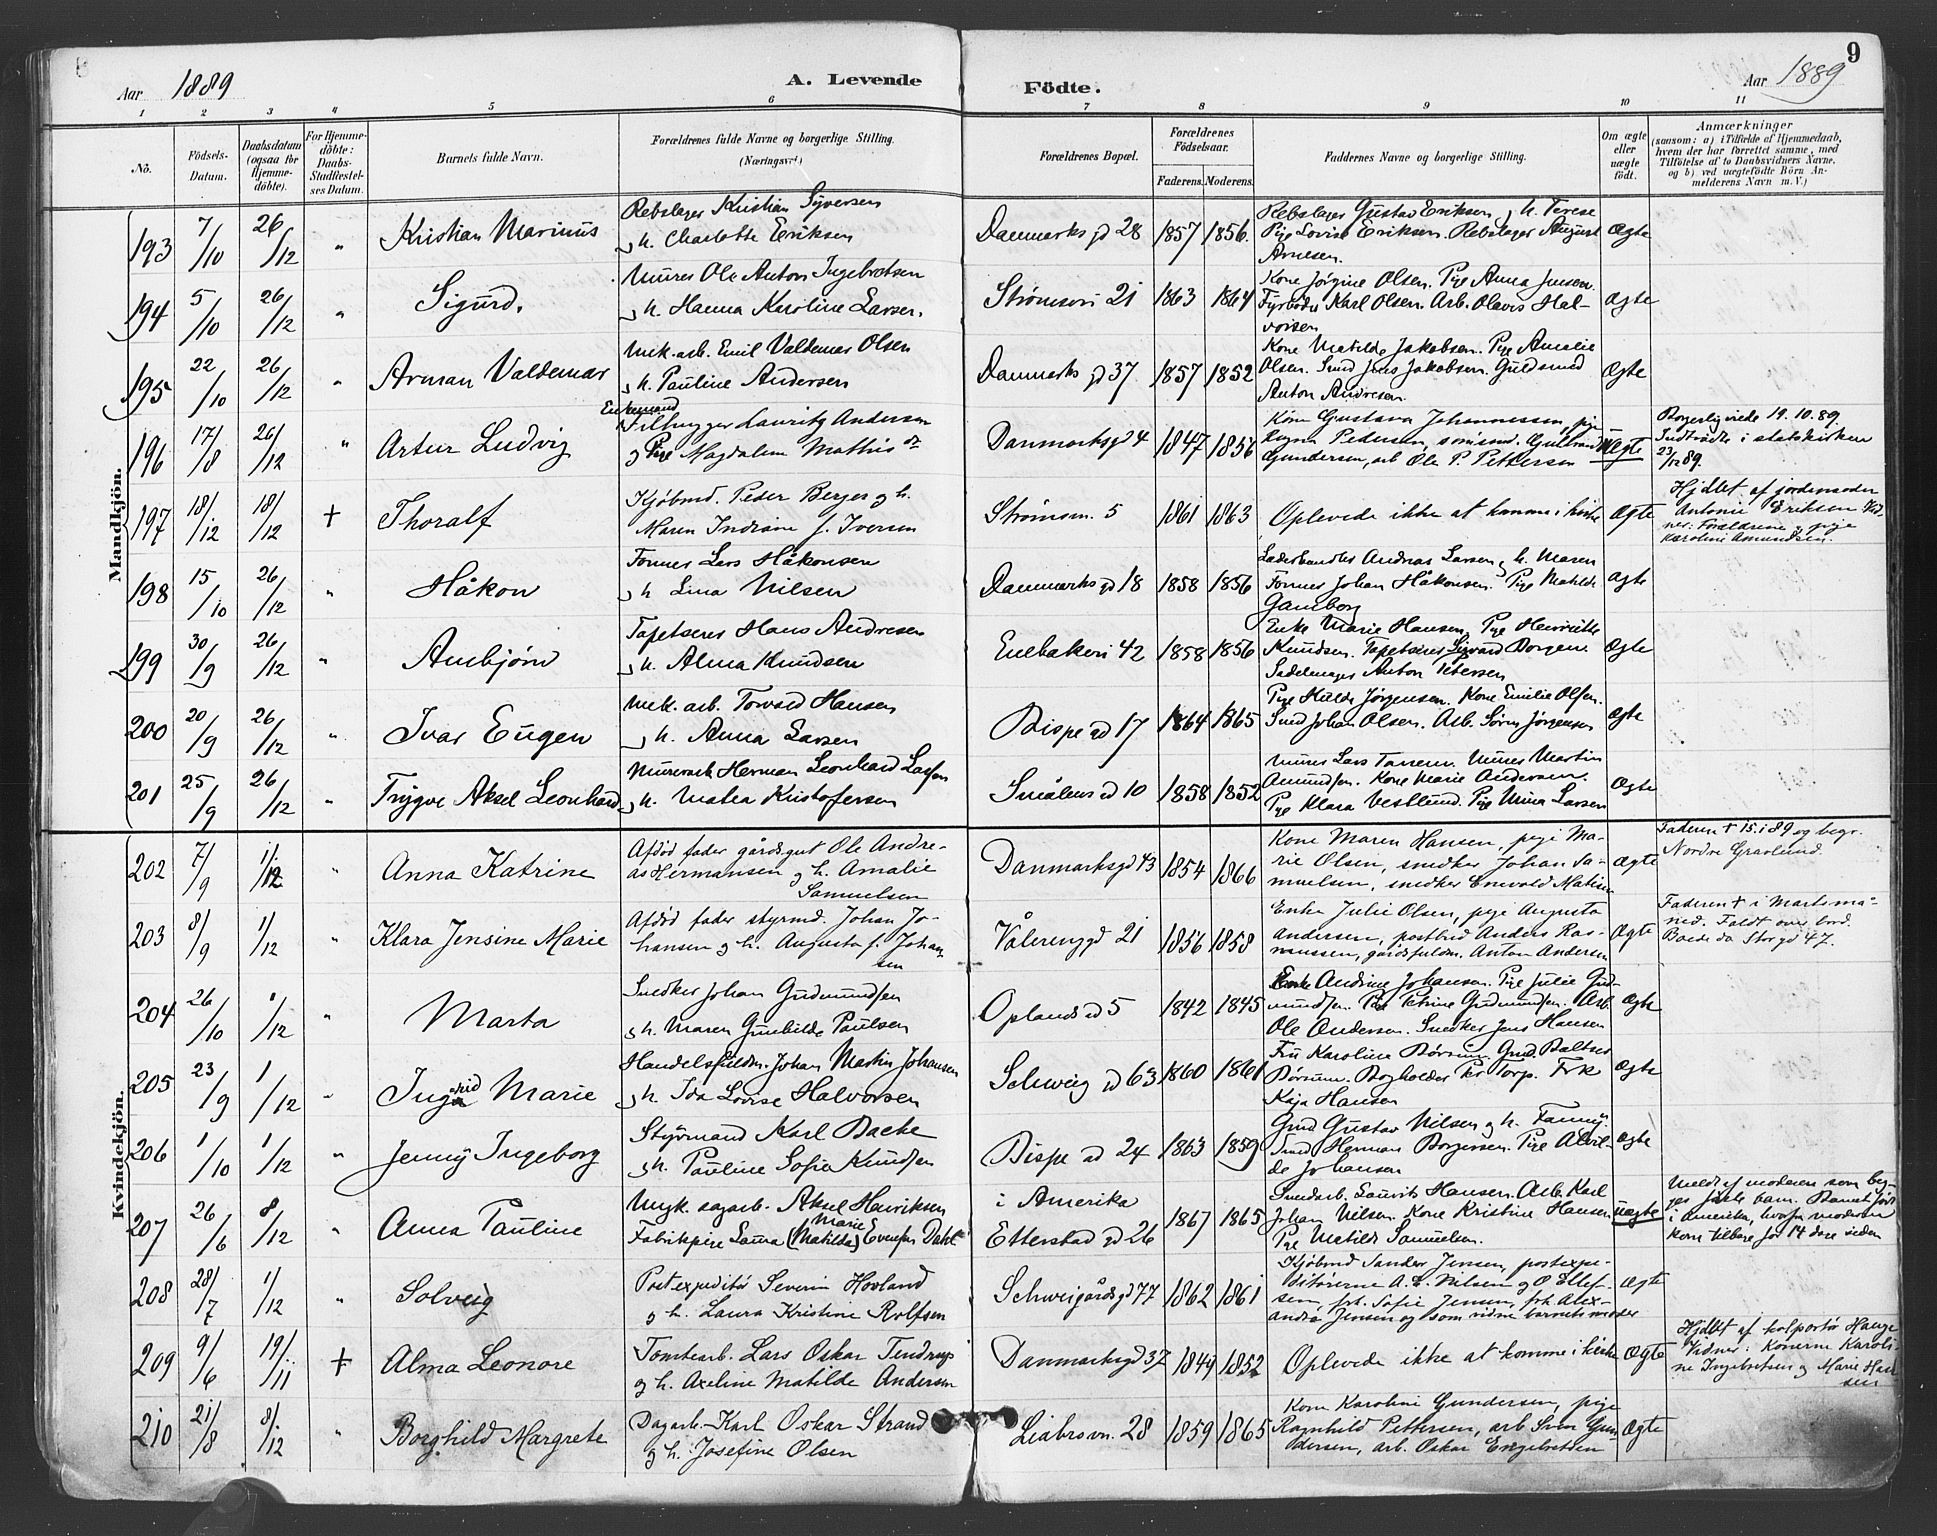 8
Aar 1889
A. Levende
Födte.
Aar 1889
9
1 2 3 4 5 6 7 8 9 10 11
No.
Födsels-Datum.
Daabsdatum (ogsaa for Hjemme-döbte).
For Hjemme-döbte: Daabs-Stadfæstel-ses Datum.
Barnets fulde Navn.
Forældrenes fulde Navne og borgerlige Stilling. (Næringsvei)
Forældrenes Bopæl.
Forældrenes Födselsaar.
Faderens. Moderens.
Faddernes Navne og borgerlige Stilling.
Om ægte eller uægte födt.
Anmærkninger
(saasom: a) i Tilfælde af Hjemmedaab,
hvem der har forrettet samme, med
Tilföielse af to Daabsvidners Navne.
og b) ved uægtefödte Börn An-
melderens Navn m. V.)
Mandkjön.
193 7/10 26/12 " Kristian Marinus
Rebslager Kristian Syversen
og h. Charlotte Eriksen
Danmarks gd 28 1857 1856.
Rebslager Gustav Eriksen og h. Terese
Pige Lovise Eriksen. Rebslager August
Arnesen.
Ægte
194 5/10 26/12 " Sigurd.
Murer Ole Anton Ingebretsen
og h. Hanna Karoline Larsen.
Strømsvn 21 1863 1864
Kone Jørgine Olsen. Pige Anna Jensen.
Fyrbøder Karl Olsen. Arb. Olavis Hal-
vorsen
Ægte
195 22/10 26/12 " Arman Valdemar
Mek. arb. Emil Valdemar Olsen
og h. Pauline Andersen
Danmarks gd 37. 1857 1852
Kone Matilde Jakobsen. Pige Amalie
Olsen. Smed Jens Jakobsen. Guldsmed
Anton Andresen.
Ægte
196 17/8 26/12 " Artur Ludvig
Enkemand
Filhugger Lauritz Andersen
og Pige Magdalene Mathis dr
Danmarksgd 4 1847 1856
Kone Gustava Johannessen, pige
Ragna Pedersen, Gulbrand
Gundersen, arb Ole P. Pettersen
Uægte
Borgerlig viede 19.10.89.
Indtrådte i statskirken
23/12 89.
197 18/12 18/12 + Thoralf
Kjøbmd. Peder Berger og h.
Maren Indiane f. Iversen
Strømsvn. 5 1861 1863
Oplevede ikke at komme i kirke
Ægte
Hjdbt. af jordemoder
Antonie Eriksen Vid-
ner: Forældrene og pige
Karoline Amundsen.
198 15/10 26/12 " Håkon
Former Lars Håkonsen
og h. Lina Nilsen
Danmarks gd 18 1858 1856
Læderhandler Andreas Larsen og h. Maren
Former Johan Håkonsen. Pige Matilde
Gamborg
Ægte
199 30/9 26/12 " Arnbjørn
Tapetserer Hans Andresen
og h. Alma Knudsen
Enebakvn 42 1858 1856
Enke Marie Hansen. Pige Henriette
Knudsen. Tapetserer Sigvard Borgen.
Sadelmager Anton Petersen
Ægte
200 20/9 26/12 " Ivar Eugen
Mek. arb. Torvald Hansen
og h. Anna Larsen
Bispe gd 17 1864 1865
Pige Hulda Jørgensen. Kone Emilie Olsen.
Smed Johan Olsen. Arb. Søren Jørgensen
Ægte
201 25/9 26/12 " Trygve Aksel Leonhard
Murersv. Herman Leonhard Larsen
og h. Matea Kristofersen
Smålens gd 10 1858 1852
Murer Lars Tanem. Murer Martin
Amundsen. Kone Marie Andersen.
Pige Klara Vestlund. Pige Mina Larsen
Ægte
Kvindekjön.
202 7/9 1/12 " Anna Katrine
Afdød fader gårdsgut Ole Andre-
as Hermansen og h. Amalie
Samuelsen
Danmarksgd 43 1854 1866
Kone Maren Hansen, pige Ma-
rie Olsen, snedker Johan Sa-
muelsen, snedker Enevold Matisen
Ægte
Faderen + 15.1 89 og begr.
Nordre Gravlund.
203 8/9 1/12 " Klara Jensine Marie
Afdød fader styrmd. Johan Jo-
hansen og h. Augusta f. Johan-
sen
Vålerenggd 21 1856 1858
Enke Julie Olsen, pige Augusta
Andersen, postbud Anders Ras-
mussen, gårdsfuldm. Anton Andersen
Ægte
Faderen + i Marts må-
ned. Faldt over bord.
Boede da Storgd 47.
204 26/10 1/12 " Marta
Snedker Johan Gudmundsen
og h. Maren Gunhilde Paulsen
Oplands gd 5 1842 1845
Enke Andrine Johansen. Pige Julie Gud-
mundsen. Pige Petrine Gudmundsen. Arb.
Ole Andersen. Snedker Jens Hansen
Ægte
205 23/9 1/12 " Ingrid Marie
Handelsfuldm. Johan Martin Johansen
og h. Ida Lovise Halvorsen
Schweig gd 63 1860 1861
Fru Karoline Børsum. Grd. Baltser
Børsum. Bogholder Per Torp. Frk
Kaja Hansen
Ægte
206 1/10 1/12 " Jenny Ingeborg
Styrmand Karl Backe
og h. Pauline Sofie Knudsen
Bispe gd 24 1863 1859
Grd Gustav Nilsen og h. Fanny.
Smed Herman Borgersen. Pige Alvil-
de Johansen
Ægte
207 26/6 8/12 " Anna Pauline
Ungk. sagarb. Aksel Henriksen
Fabrikpige Laura (Matilda) Marie Evensen Dahl
i Amerika
Etterstad gd 26 1867 1865
Smedarb. Laurits Hansen. Arb. Karl
Johan Nilsen. Kone Kristine Hansen
Pige Matilde Samuelsen.
uægte
Meldt af moderen som be-
ges første barn. Barnet født
i Amerika, hvorfra moderen
kom tilbage for 14 dage siden
208 28/7 1/12 " Solveig
Postexpeditør Severin Hovland
og h. Laura Kristine Rolfsen
Schweigårdsgd 77 1862 1861
Kjøbmd Sander Jensen, postexpe-
ditørerne A. E. Nilsen og O Ellef-
sen, frk. Sofie Jensen, frk Alex-
andra Jensen og som vidne barnets moder
Ægte
209 9/6 19/11 + Alma Leonore
Tomtearb. Lars Oskar Tendrup
og h. Axeline Matilde Andersen
Danmarksgd 37 1849 1852
Oplevede ikke at komme i kirke
Ægte
Hjdbt af kolportør Hauge
Vidner: Konerne Karoli-
ne Ingebretsen og Marie Han-
sen
210 21/8 8/12 " Borghild Margrete
Dagarb. Karl Oskar Strand
og h. Josefine Olsen
Liabrovn. 28 1859 1865
Kone Karoline Gundersen, pige
Ragnhild Pettersen, arb Sven Gun-
dersen, arb. Oskar Engebretsen
Ægte